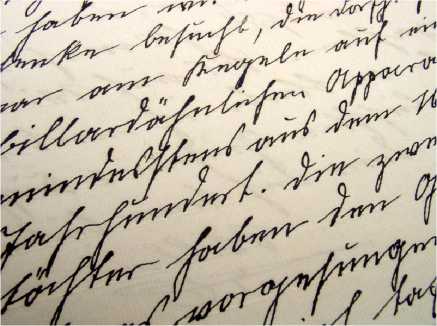 haben wir
besucht, die dort
war am Kegeln auf ei
billardähnlichen Appara
mindesstens aus dem 16
Jahrhundert. Die zwe
töchter haben den O
vorgesungen